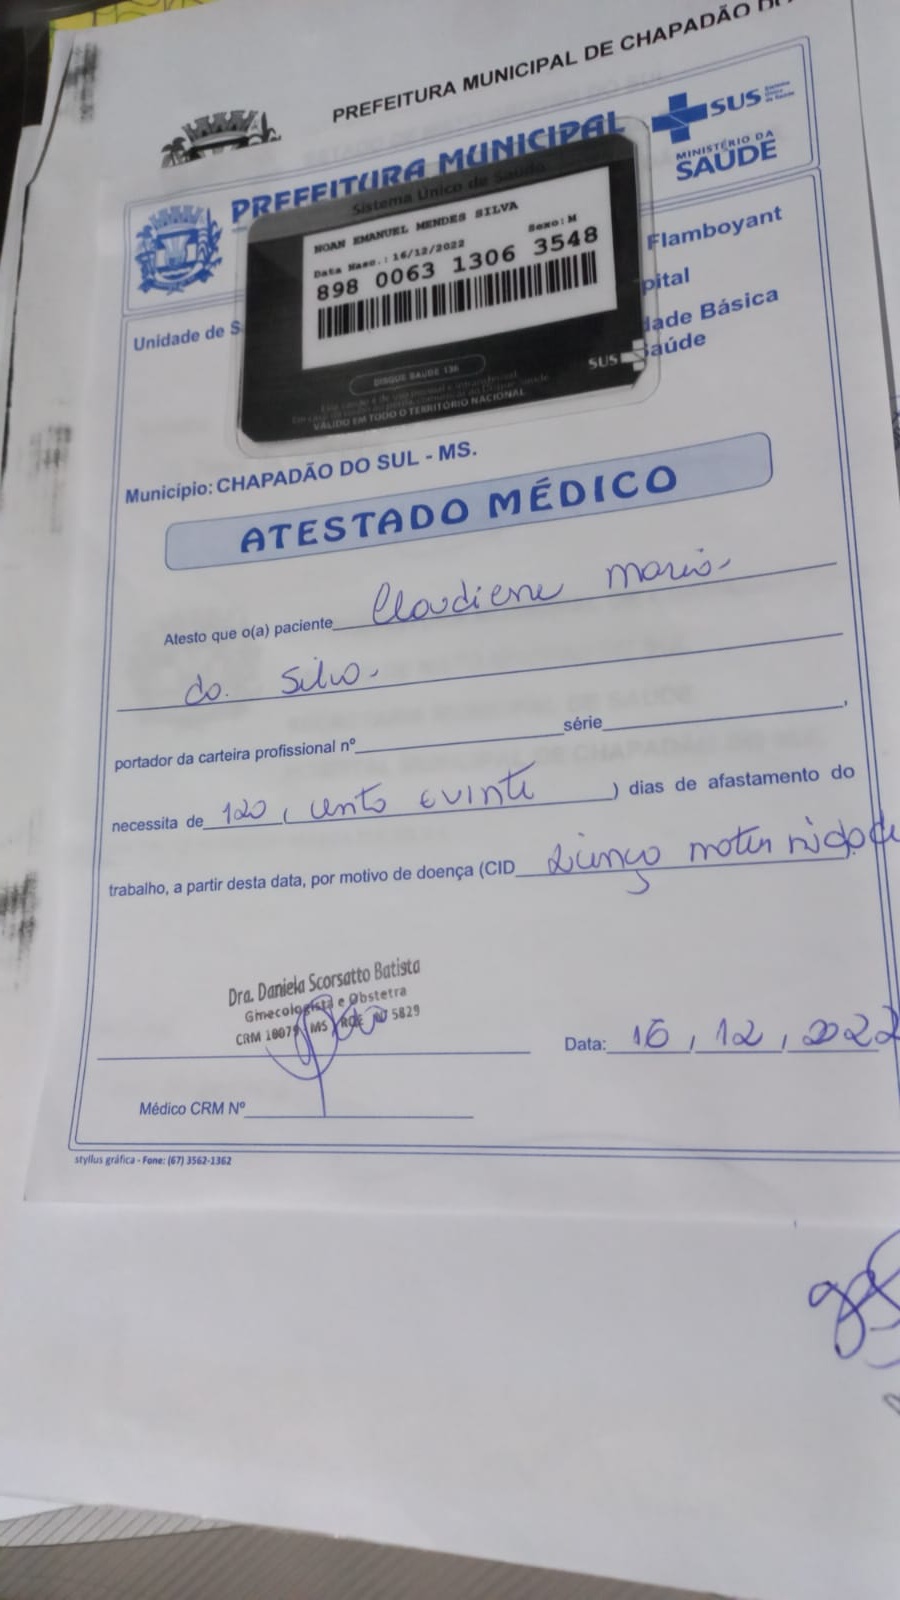 PREFEITURA MUNICIPAL DE CHAPADÃO DO
PREFEITURA MUNICIPAL
SUS Sistema Único de Saúde
MINISTÉRIO DA
SAÚDE
Sistema Único de Saúde
NOAN EMANUEL MENDES SILVA
Data Nasc.: 16/12/2022 Sexo: M
898 0063 1306 3548
DISQUE SAÚDE 136
VÁLIDO EM TODO O TERRITÓRIO NACIONAL
SUS
Flamboyant
pital
Unidade de S
dade Básica
Saúde
Município: CHAPADÃO DO SUL - MS.
ATESTADO MÉDICO
Atesto que o(a) paciente Claudiene Maria
da Silva
portador da carteira profissional nº série ,
necessita de 120 ( cento e vinte ) dias de afastamento do
trabalho, a partir desta data, por motivo de doença (CID Licença maternidade ).
Dra. Daniela Scorsatto Batista
Ginecologista e Obstetra
CRM 10079 MS RQE 5829
Data: 16 / 12 / 2022
Médico CRM Nº
styllus gráfica - Fone: (67) 3562-1362